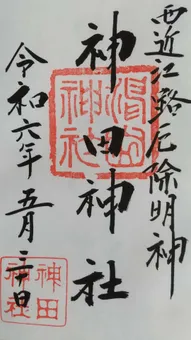 西近江路厄除明神
神田神社
令和六年五月三十日
神田
神社